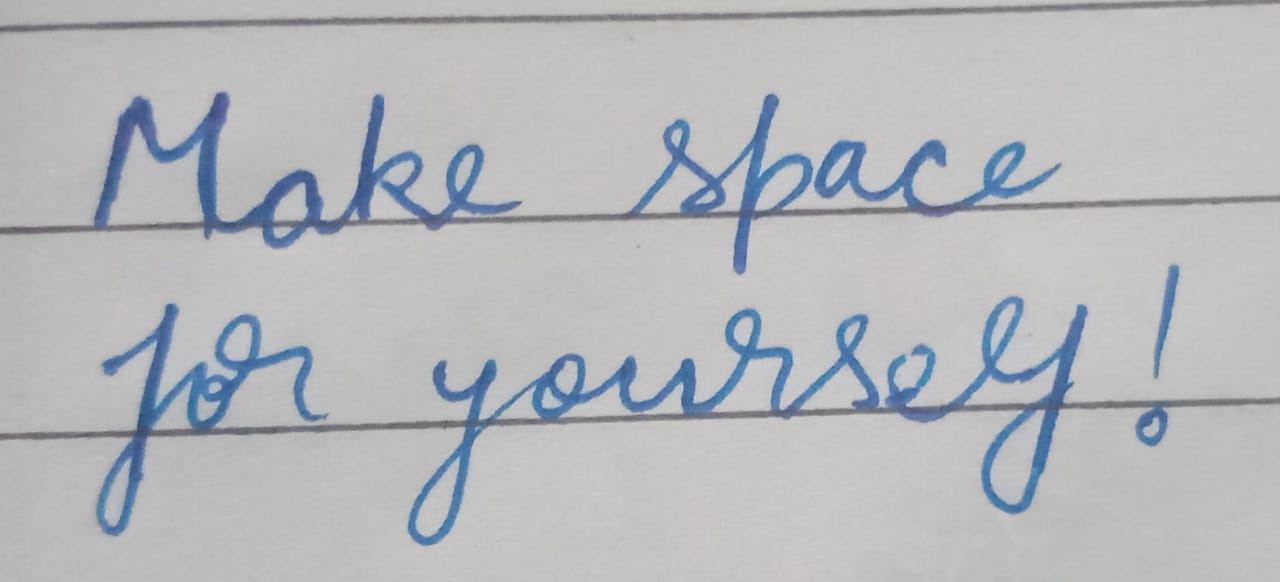 Make space
for yourself!